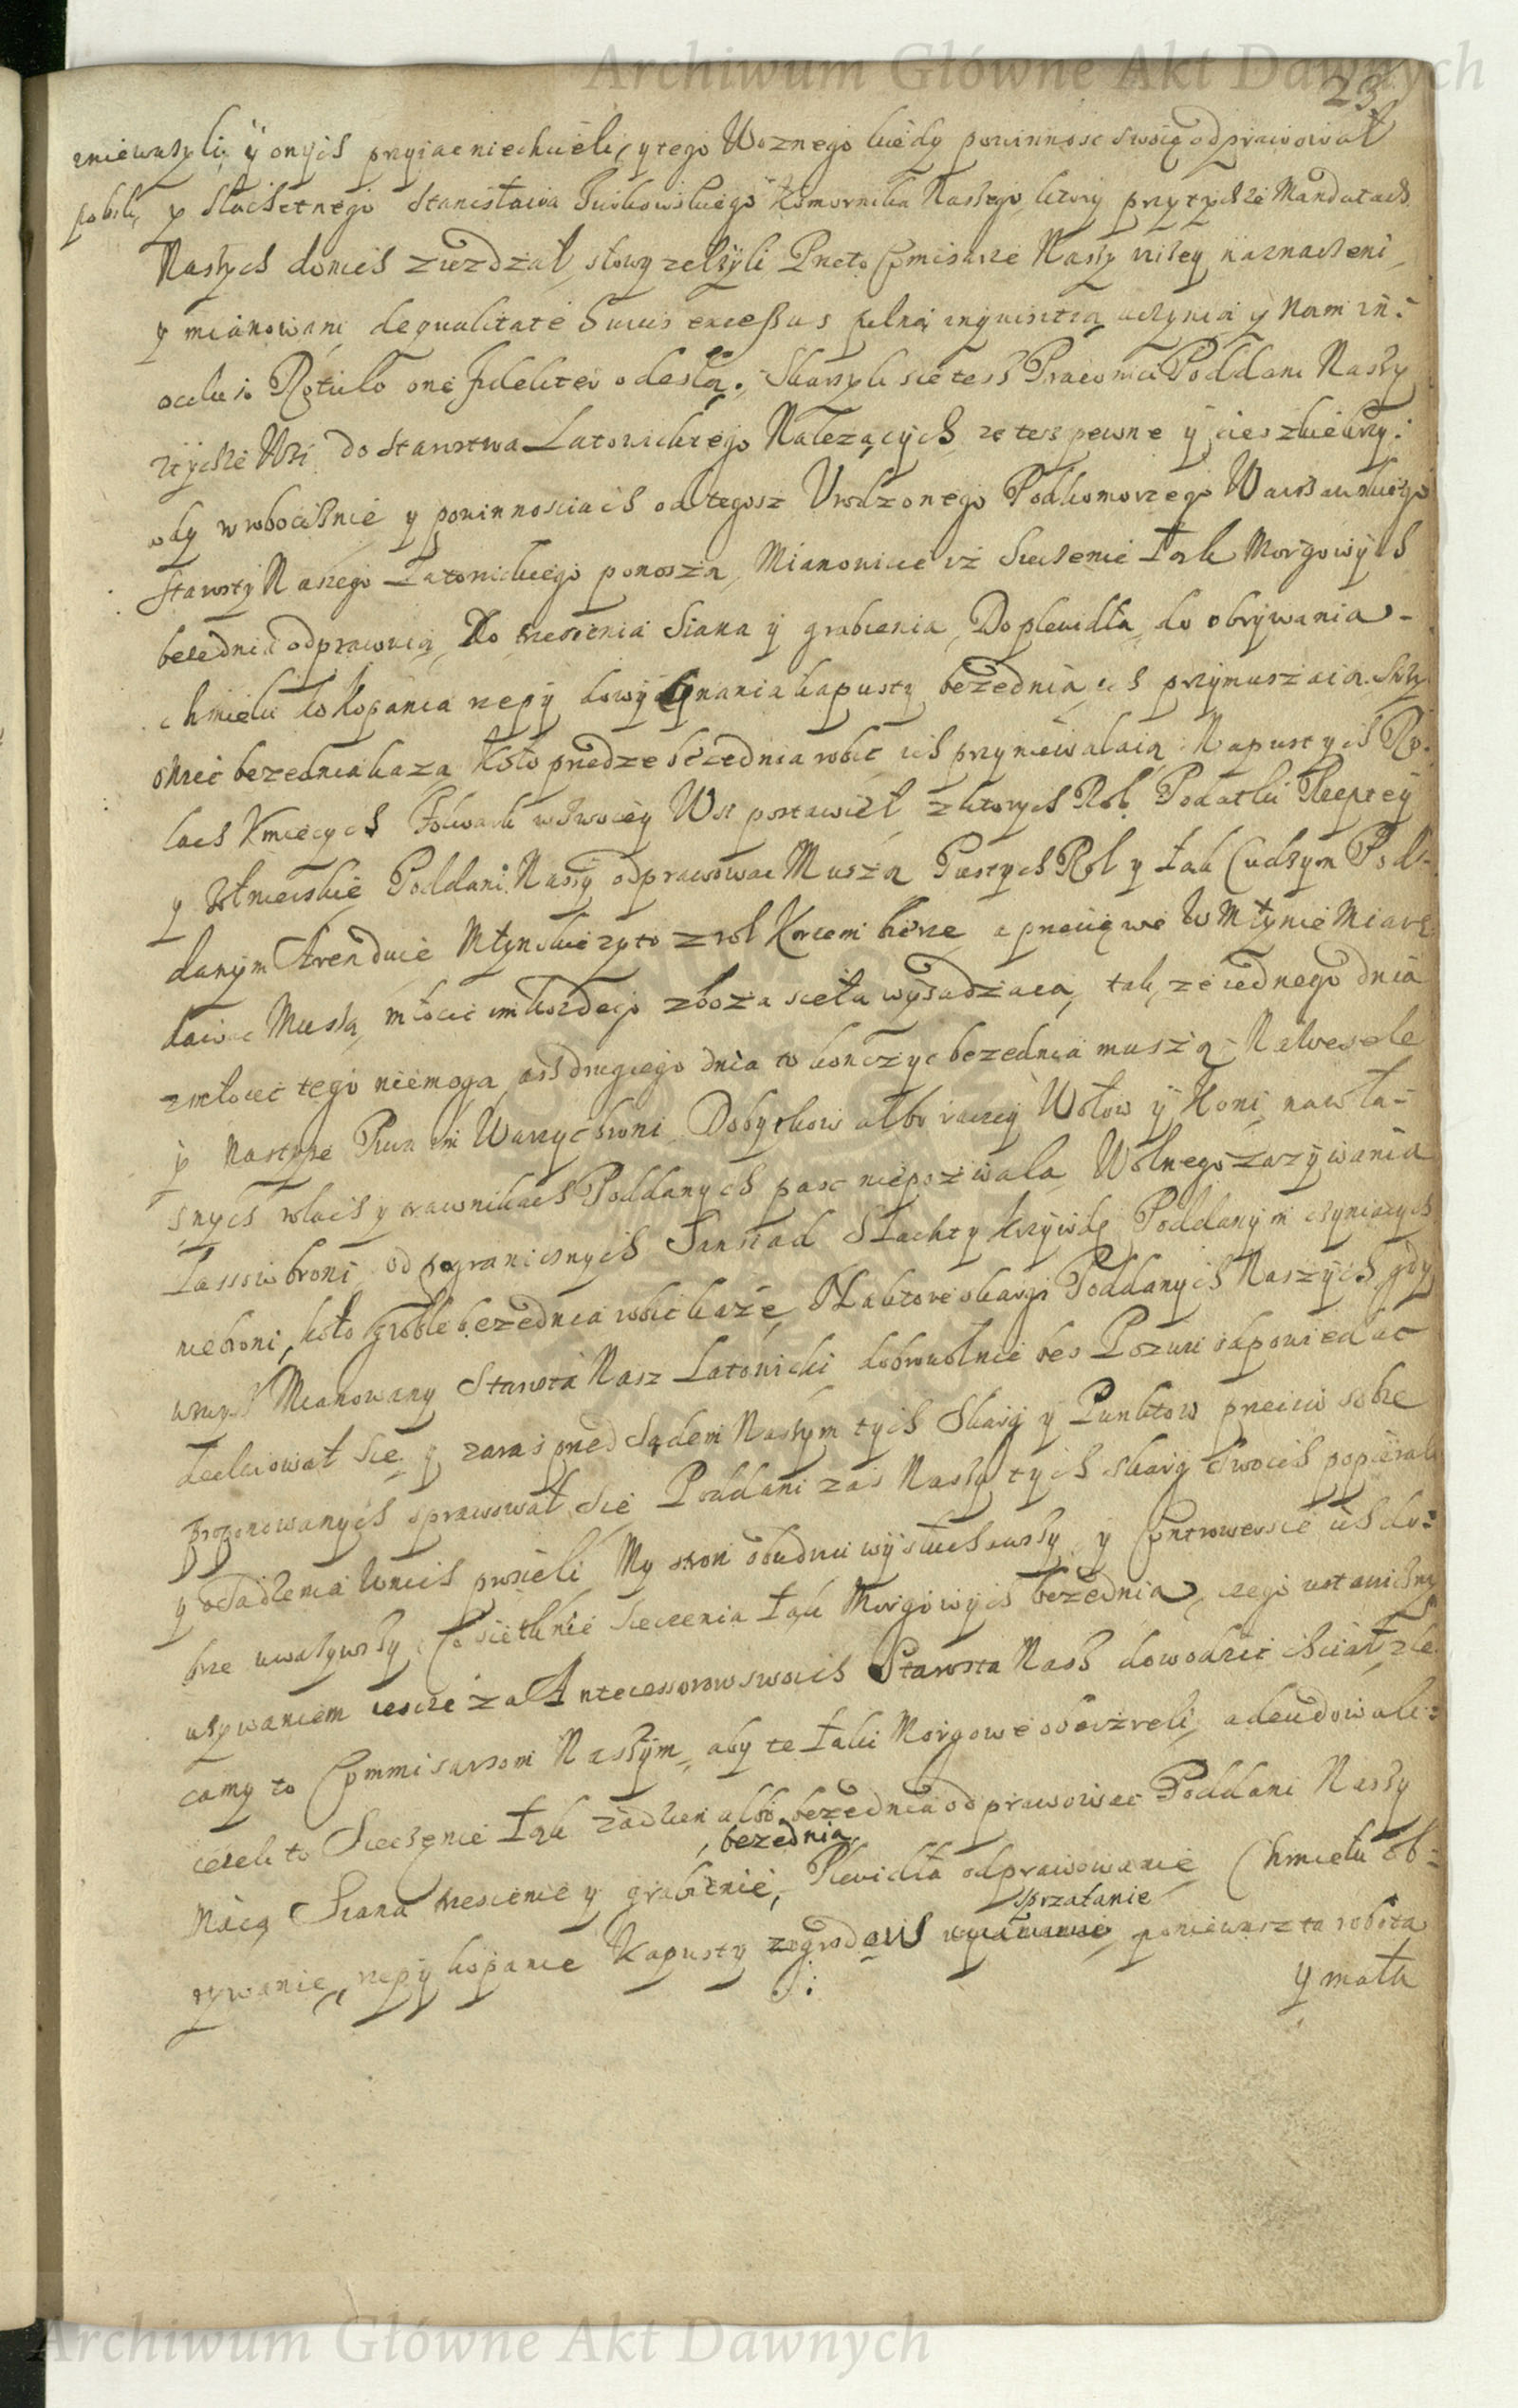 Archiwum Główne Akt Dawnych
23
zniewazyli, y onych przyiac niechcieli, y tego Woznego kiedy powinnosc swoię odprawował
pobili, y Slachetnego Stanisława Komornika Naszego ktory przy tychze Mandatach
Naszych do nich ziezdzał, słowy zelzyli Przeto Comisarze Naszy nizey naznaczeni,
y mianowani de qualitate huius excessus pełną inquisitią uczynią y Nam in
ocluso Rotulo one fideliter odeslą. Skarzyli sie tesz Pracowici Poddani Naszy
ztychze Wsi do Starostwa Latowickiego Nalezących ze tesz pewne y ciezkie krzy:
wdy w robociznie y powinnosciach od tegosz Urodzonego Podkomorzego Warszawskiego
Starosty Naszego Latowickiego ponoszą, Mianowicie iz Sieczenie Łąk Morgowych
bezednia odprawuią, Do trzesienia Siana y grabienia, Do plewidła, do obrywania
chmielu do kopania rzepy do wycynania kapusty bezednia ich przymuszaią.
bezednia kazą Koło przedze bezednia robic ich przyniewalaią Na pustych Ro:
lach Kmiecych Folwark w Swoiey Wsi postawieł z ktorych Rol Podatki Rzeptey
y zołnierskie Poddani Naszy odprawowac Muszą Pustych Rol y Łąk Cudzym Pod:
danym Arenduie Młynskie zyto z rol Korcem bierze a przecię we Młynie Miare
dawac Muszą, młocic im kozdego zboza scetła wysadzaią, tak, ze iednego dnia
zmłocic tego niemogą, asz drugiego dnia to konczyc bezednia muszą Na Wesele
y Nastype Piwa im Warzyc broni Dobytkow albo raczey Wołow y Koni na wła:
snych rolach y trawnikach Poddanych pasc niepozwala Wolnego zazywania
Lassow broni, od pogranicznych Sąnsiad Slachty krzywdę Poddanym czyniących
niebroni, koło groble bezednia robic kaze, Na ktore skargi Poddanych Naszych, gdy
Mianowany Starosta Nasz Latowicki dobrowolnie bes Pozwu odpowiedac
deklarował sie y zaraz przed Sądem Naszym tych Skarg y Punktow przeciw sobie
proponowanych sprawował sie Poddani zas Naszy tych skarg swoich popierali
y osądzenia w nich prosieli My stron obudwu wysłuchawszy y Controwersie ich do:
brze uwazywszy, Co sietknie Sieczenia Łąk Morgowych bezednia, czego ustawicznym
uzywaniem ieszcze za Antecessorow swoich Starosta Nasz dowodzic chciał zle:
camy to Commisarzom Naszym, aby te Łąki Morgowe obeyzreli, adeudowali:
iezeli to Sieczenie Łąk zadzien albo bezednia odprawowac Poddani Naszy
maią Siana trzesienie y grabienie, bezednia Plewidła odprawowanie Chmielu ob:
rywanie, rzepy kopanie Kapusty z ogrodow sprzatanie poniewasz ta robota
y mała
Archiwum Główne Akt Dawnych